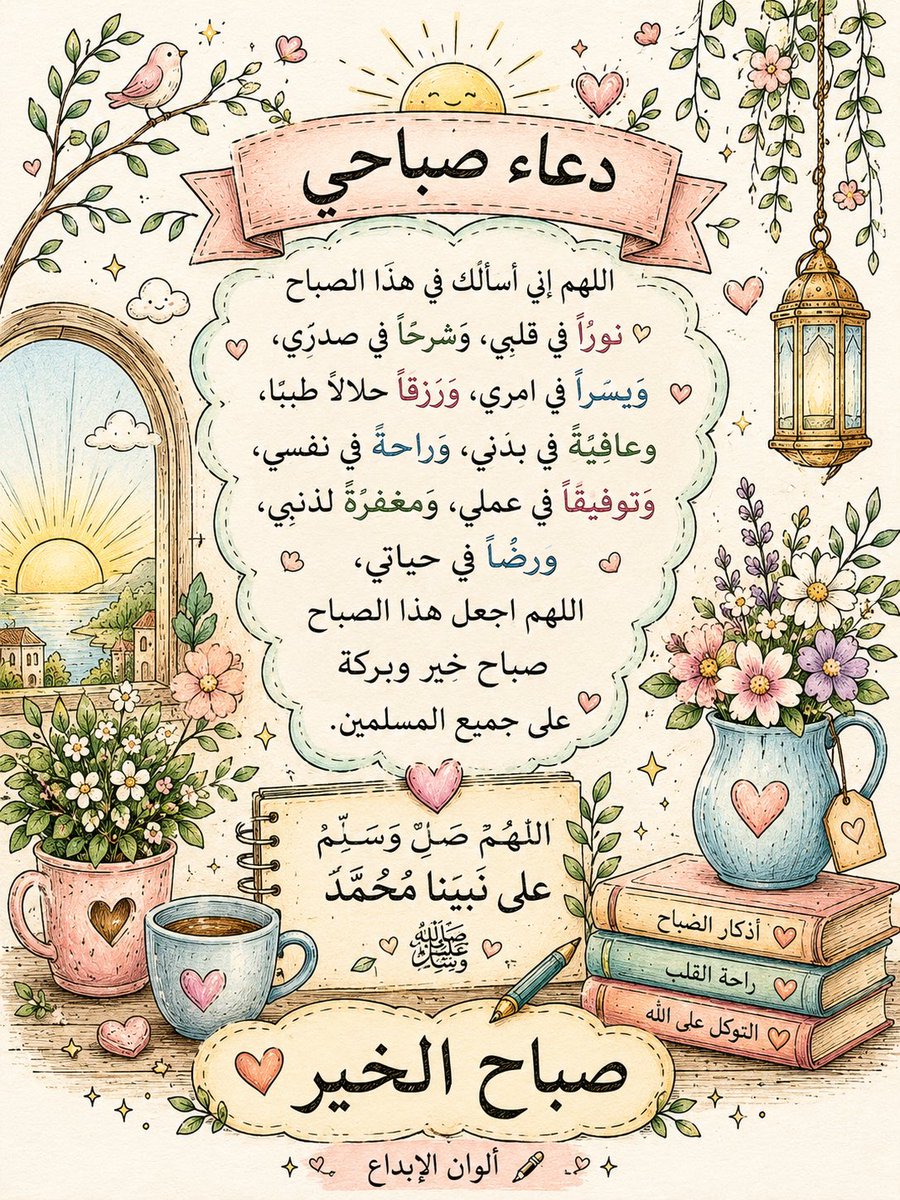 دعاء صباحي
اللهم إني أسألُك في هذَا الصباح
نورُاً في قلبِي، وَشرحًاً في صدرَِي،
وَيسَراً في امرِي، وَرَزقَاً حلالاً طببًا،
وعافِيًةً في بدَني، وَراحةً في نفسي،
وَتوفيقًَاً في عملي، وَمغفرًةً لذنبِي،
وَرضُاً في حياتي،
اللهم اجعل هذا الصباح
صباح خِير وبركة
على جميع المسلمين.
اللهُمْ صَلِّ وَسَلِّمْ
على نَبيَنا مُحُمَّدً
ﷺ
أذكار الصباح
راحة القلب
التوكل على الله
صباح الخير
ألوان الإبداع